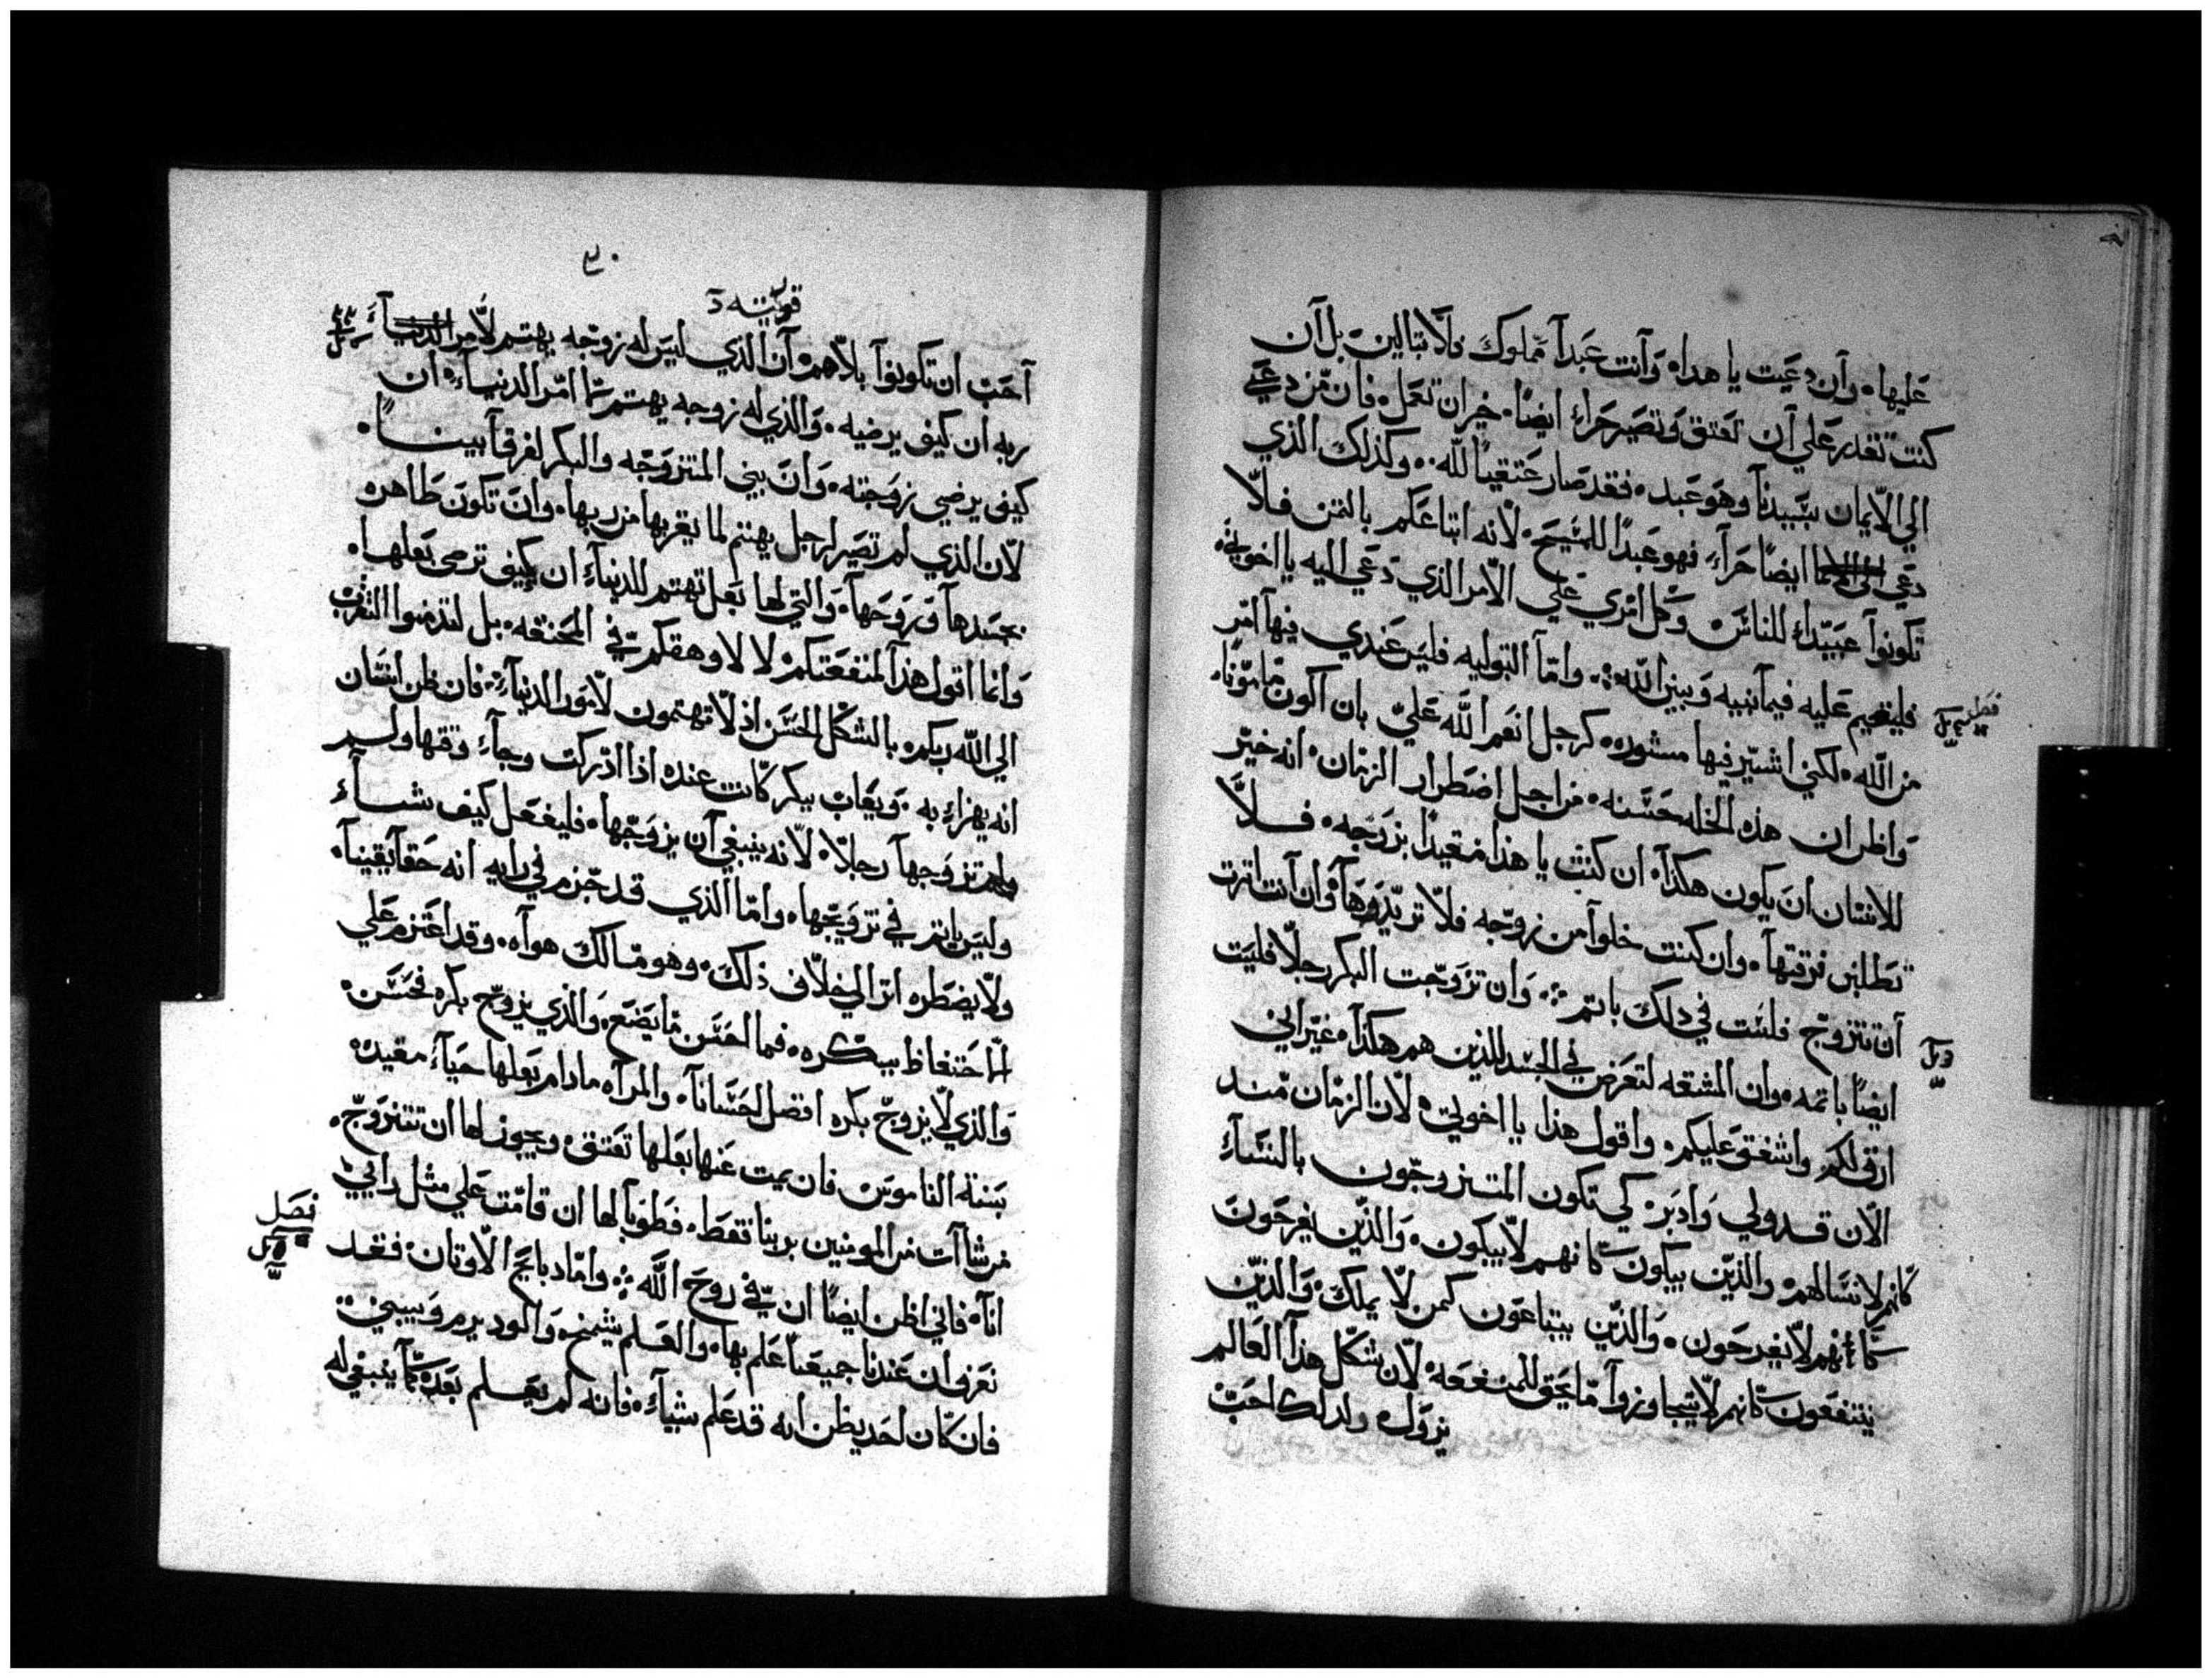 عليها. وان دعيت يا هدا. وانت عبداً مملوك فلا تبالين بل ان
كنت تقدر علي ان تعتق وتصير حراء ايضاً. خير ان تعمل. فان من دعي
الي الايمان بسيدنا وهو عبد. فقد صار عتقياً لله.. وكذلك الذي
دعي ايضاً حراء فهو عبداً للمسيح. لانه ابتاعكم بالثمن فلا
تكونوا عبيداء للناس. وكل امري علي الامر الذي دعي اليه يا اخوتي.
فليقيم عليه فيما بنيه وبين الله. واما البتوليه فليس عندي فيها امر
من الله. لكني اشير فيها مشوره. كرجل انعم الله علي بان اكون مامونا.
واظن ان هده الخله حسنه. من اجل اضطرار الزمان. انه خير
للانسان ان يكون هكذا. ان كنت يا هذا مقيداً بزوجه. فلا
تطلبن فرقتها. وان كنت خلوا من زوجه فلا تريد وهآ وان انت اثرت
ان تتزوج فلست في دلك باثم. وان تزوجت البكر رجلا فليست
ايضاً باثمه. وان المشقه لتعرض في الجسد للذين هم هكذا. غير اني
ارق لكم واشفق عليكم. واقول هذا يا اخوتي. لان الزمان منذ
الان قد ولي وادبر. كي تكون المتزوجون بالنساء
كانهم لا نسا لهم. والذين يبكون كانهم لا يبيكون. والذين يفرحون
كانهم لا يفرحون. والذين يبتاعون كمن لا يملك. والذين
ينتفعون كانهم لا يتجاوزوا ما يحق للمنفعه. لان شكل هذا العالم
يزول ولدلك احب
فصل
قورنتيه د
احب ان تكونوا بلا هم. ان الذي ليس له زوجه يهتم لامر
ربه ان كيف يرضيه. والذي له زوجه يهتم بما امر الدنياء. ان
كيف يرضي زوجته. وان بيني المتزوجه والبكر لفرقا بيناً.
لان الذي لم تصير لرجل يهتم لما يقربها من ربها. وان تكون طاهره
بجسدها وروحها. والتي لها بعل تهتم للدنياء ان كيف ترضي بعلها.
وانما اقول هذا لمنفعتكم. لا لاوهقكم في المخنقه. بل لتدمنوا التقرب
الي الله ربكم. بالشكل الحسن اذ لا تهتمون لامور الدنياء. فان ظن انسان
انه يهزاء به. ويعاب ببكر كانت عنده اذا ادركت وجاء وقتها ولم
يزوجها رجلا. لانه ينبغي ان يزوجها. فليفعل كيف شاء
وليس ياثم في تزويجها. واما الذي قد جزم في رايه انه حقا يقينا.
ولا يضطره امر الي خلاف ذلك. وهو مالك هواه. وقد اعتزم علي
الاحتفاظ ببكره. فما احسن ما يصنع. والذي يزوج بكره فحسن.
والذي لا يزوج بكره افضل احسانا. والمراه مادام بعلها حياء مقيده
بسنة الناموس. فان يمت عنها بعلها تعتق. ويجوز لها ان تتزوج.
من شاات من المومنين بربنا فقط. فطوبا لها ان قامت علي مثل رايي
انا. فاني اظن ايضاً ان في روح الله. واما دبايح الاوتان. فقد
نعرف ان عندنا جميعنا علم بها. والعلم يشمخ. والود يرم ويبني..
فان كان احد يظن انه قد علم شياء. فانه لم يعلم بعد كما ينبغي له
فصل